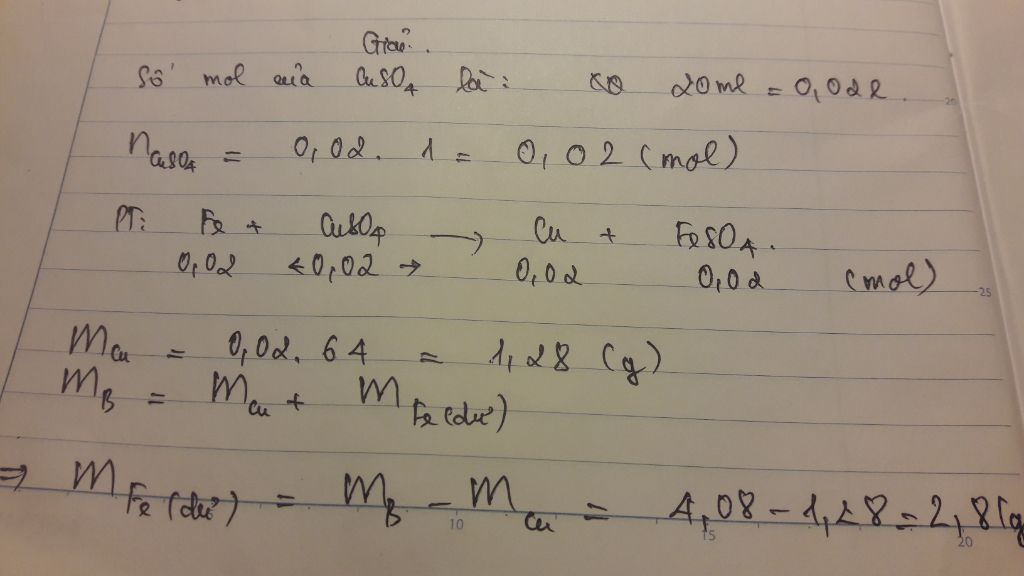 Giải.
Số mol của CuSO4 là: 20ml = 0,02l.
nCuSO4 = 0,02. 1 = 0,02 (mol)
PT: Fe + CuSO4 → Cu + FeSO4.
0,02 ← 0,02 → 0,02 0,02 (mol)
mCu = 0,02. 64 = 1,28 (g)
mB = mCu + mFe (dư)
⇒ mFe (dư) = mB - mCu = 4,08 - 1,28 = 2,8 (g